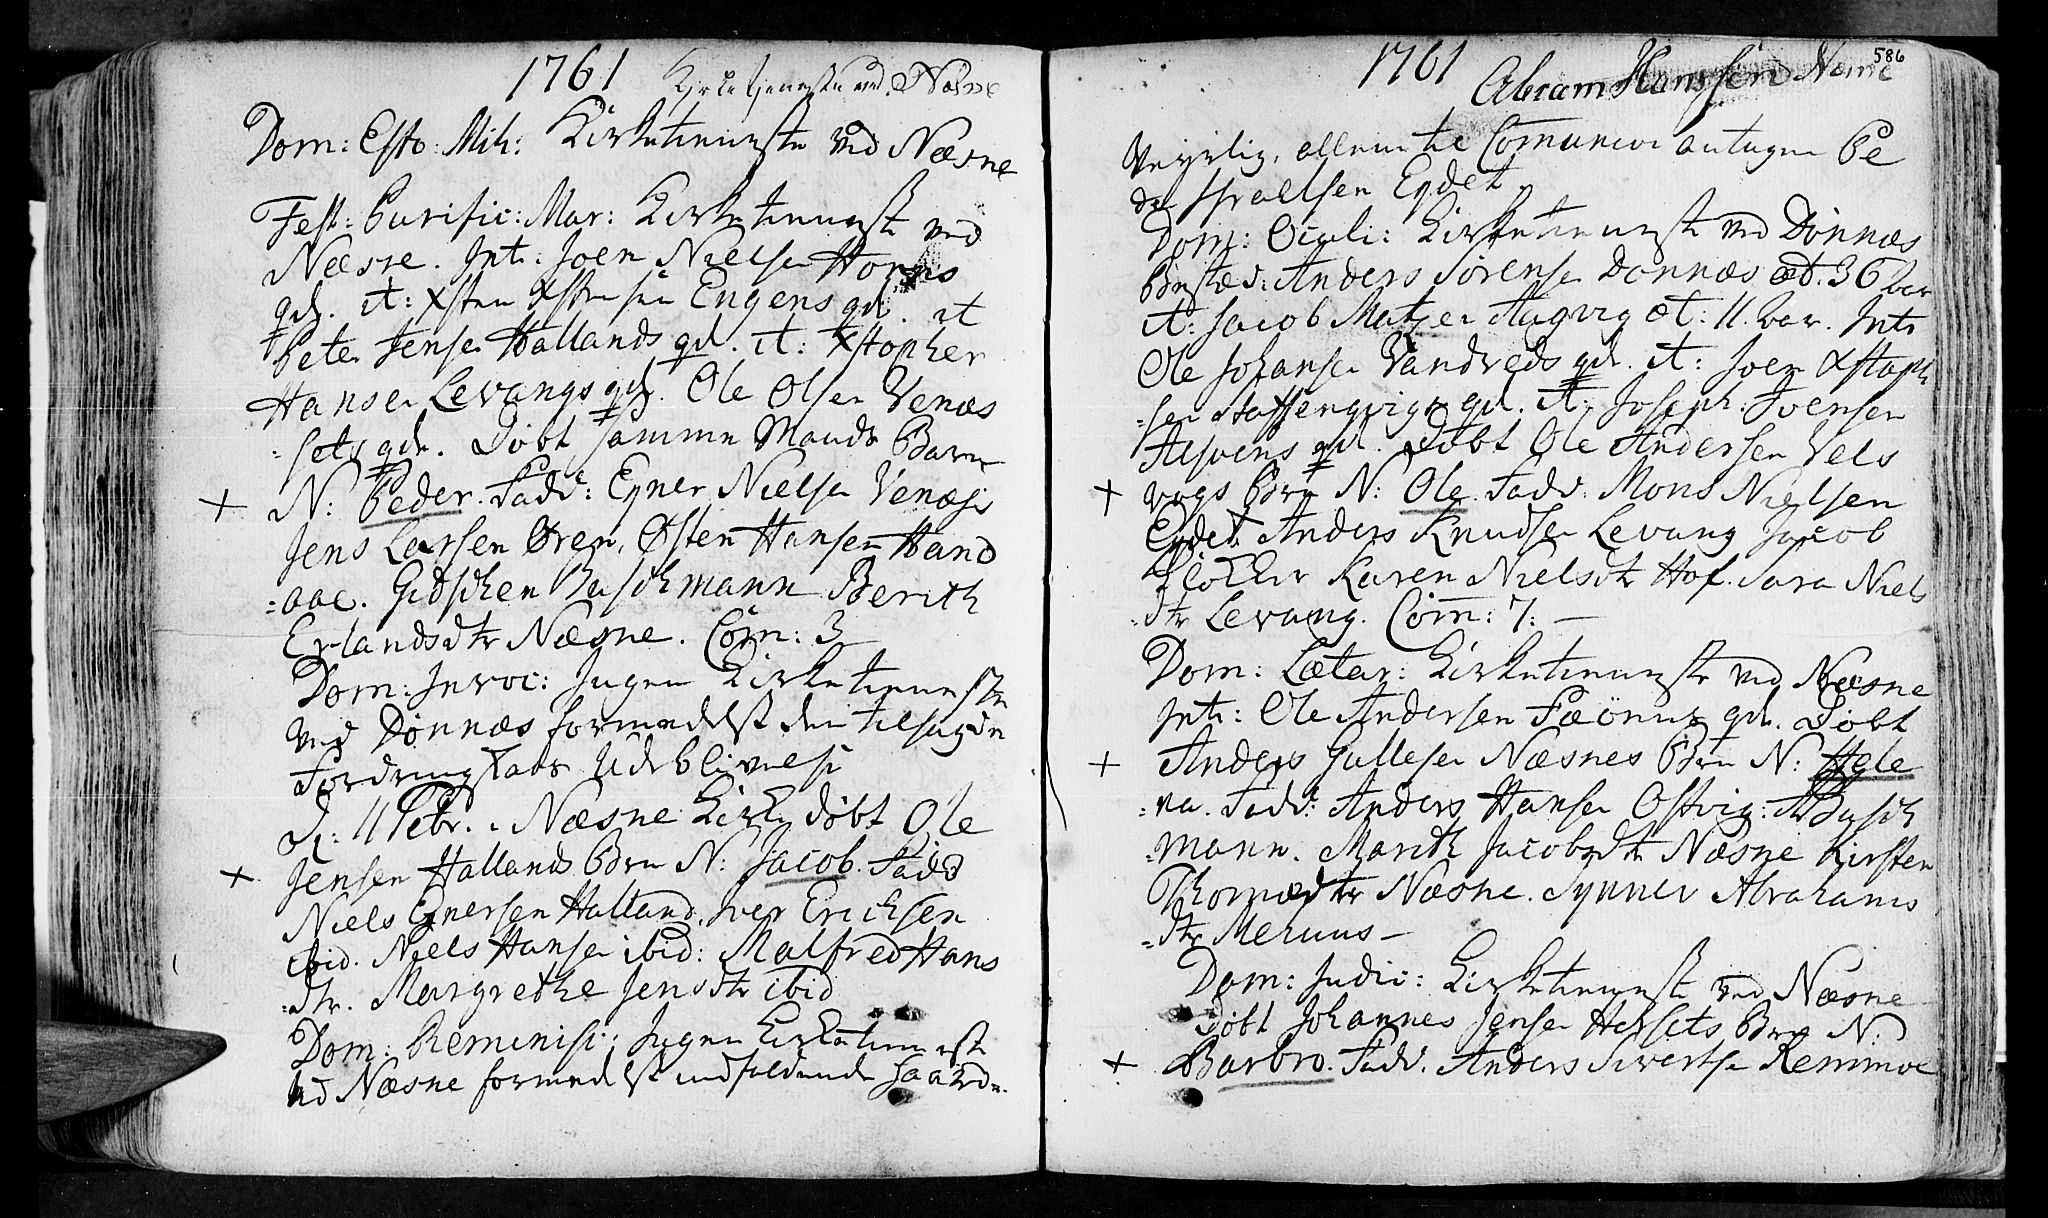 1761 Kirketjeneste ved Næsne
Dom: Esto Mih: Kirketieniste ved Næsne
Fest: Purific: Mar: Kirketienist ved
Næsne. Int: Joen Nielsen
qd. it: Xsten Engens qd. it
Peter Jensen Hallands qd. it: Xstopher
Hansen Levangs qd. Ole Olsen Venæs
=sets qd. Døbt samme Mands Barn
+ N: Peder. Fadd: Eyner Nielsen Venæs
Jens Larsen Øren, Østen Hansen Hand
=aae. Gidschen Buschmann Berith
Erlandsdtr Næsne. Com: 3
Dom: Invoc: Ingen Kirketienniste
ved Dønnæs formedelst den tilsagde
Udeblivelse
D: 11 Febr. i Næsne Kirke døbt Ole
+ Jensen Hallands Brn N: Jacob. Fadd
Niels Eynersen Halland, Iver Erichsen
ibid. Niels Hansen ibid: Malfred Hans
=dtr. Margrethe Jensdtr ibid
Dom: Reminisc: Ingen Kirketienniste
ved Næsne formedelst indfaldende haarde
586
1761 Abram Hanssen Næsne
Veyrlig, allene til Comunion antagen Pe
der Israelsen Eydet
Dom: Oculi: Kirketienniste ved Dønnæs
Anders Sørensen Dønnæs æt. 36 aar
it: Jacob Matsen Aagvig æt: 11 aar. Int
Ole Johansen Vandveds qd. it: Joen Xstoph
=sen qd. it: Joseph Joensen
Alsvens qd. Døbt Ole Andersen Vels
+ vogs Brn N: Ole. Fadd: Mons Nielsen
Eydet. Anders Knudsen Levang Jacob
Karen Nielsdtr Hof. Sara Niels
=dtr Levang. Com: 7. —
Dom: Lætar: Kirketienniste ved Næsne
Int: Ole Andersen qd. Døbt
+ Anders Gullesen Næsnes Brn N: Hele
=na. Fadd: Anders Hansen Ostvig: A Busch
=mann. Marith Jacobsdtr Næsne Kirsten
Thomædtr Næsne. Synnev Abrahams
=dtr —
Dom: Judic: Kirketienniste ved Næsne
Døbt Johannes Jensen Hersets Brn N:
+ Barbro. Fadd. Anders Sivertsen Remmoe